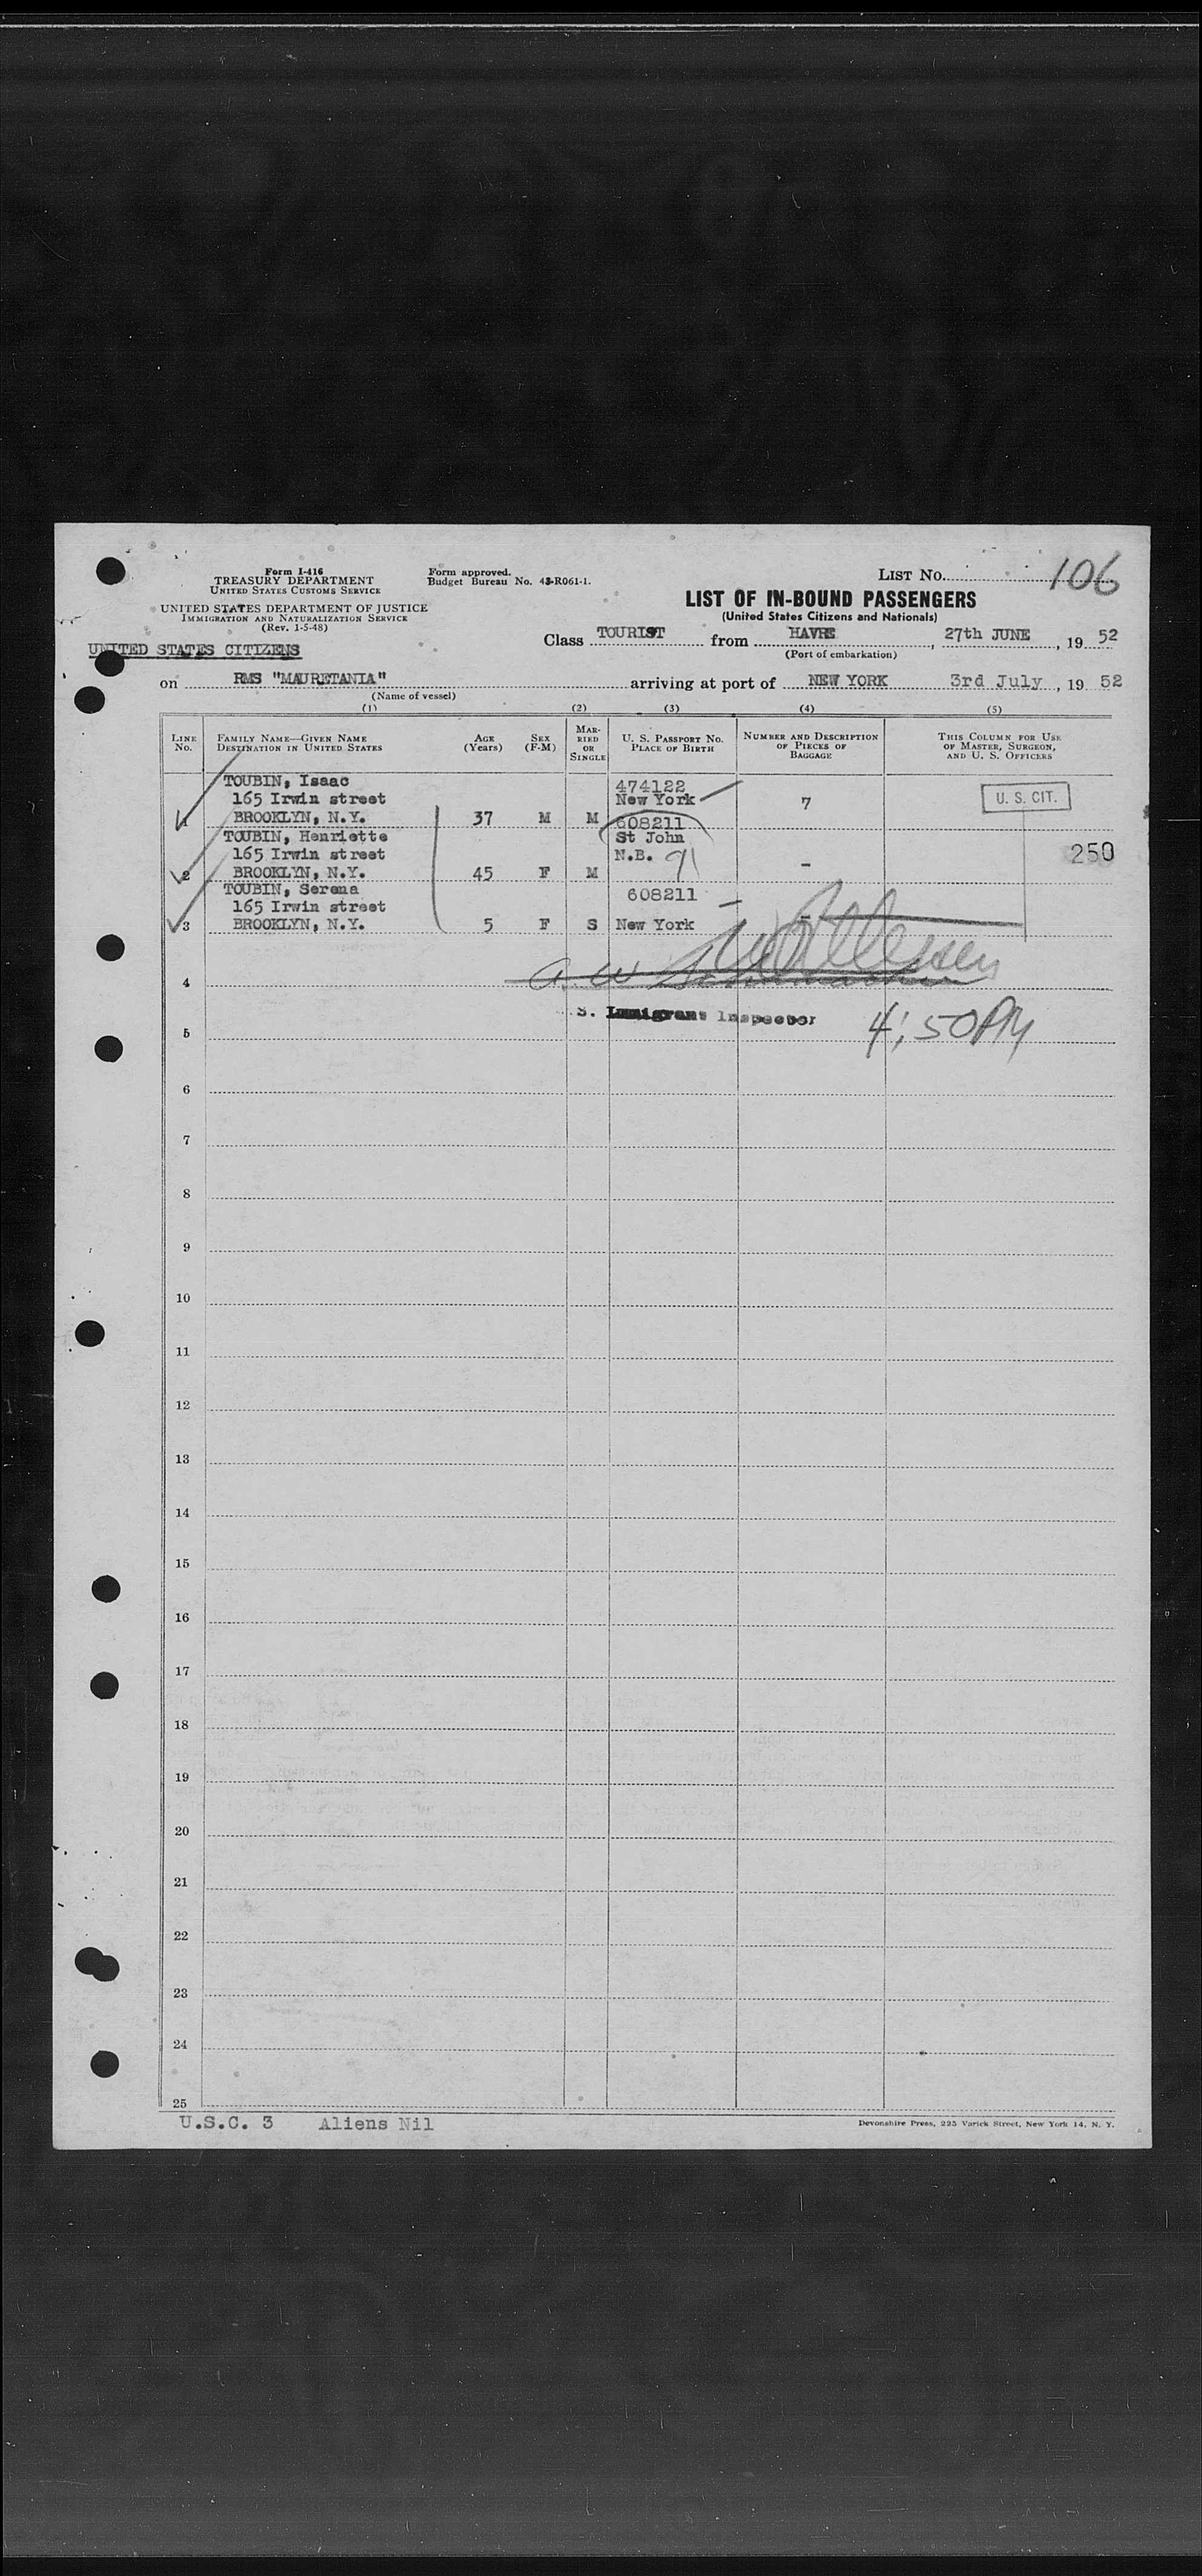 Form I-416
TREASURY DEPARTMENT
UNITED STATES CUSTOMS SERVICE
UNITED STATES DEPARTMENT OF JUSTICE
IMMIGRATION AND NATURALIZATION SERVICE
(Rev. 1-5-48)
UNITED STATES CITIZENS
Form approved.
Budget Bureau No. 43-R061-1.
LIST No. 106
LIST OF IN-BOUND PASSENGERS
(United States Citizens and Nationals)
Class TOURIST from HAVRE, 27th JUNE, 19 52
(Port of embarkation)
on RMS "MAURETANIA" arriving at port of NEW YORK 3rd July, 19 52
(Name of vessel)
(1) (2) (3) (4) (5)
LINE No. FAMILY NAME—GIVEN NAME DESTINATION IN UNITED STATES AGE (Years) SEX (F-M) MARRIED OR SINGLE U. S. PASSPORT No. PLACE OF BIRTH NUMBER AND DESCRIPTION OF PIECES OF BAGGAGE THIS COLUMN FOR USE OF MASTER, SURGEON, AND U. S. OFFICERS
TOUBIN, Isaac 474122
165 Irwin street New York 7 U. S. CIT.
1 BROOKLYN, N.Y. 37 M M 608211
TOUBIN, Henriette St John
165 Irwin street N.B. 91 250
2 BROOKLYN, N.Y. 45 F M -
TOUBIN, Serena 608211
165 Irwin street
3 BROOKLYN, N.Y. 5 F S New York -
4 A. W.
S. Immigrant Inspector 4:50PM
5
6
7
8
9
10
11
12
13
14
15
16
17
18
19
20
21
22
23
24
25
U.S.C. 3 Aliens Nil
Devonshire Press, 225 Varick Street, New York 14, N. Y.